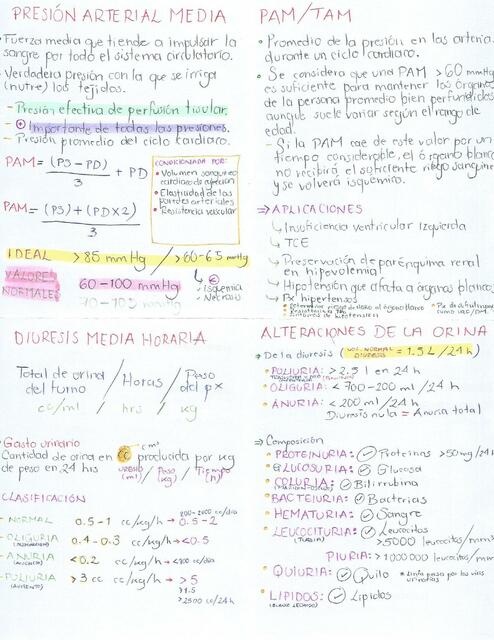 PRESIÓN ARTERIAL MEDIA
• Fuerza media que tiende a impulsar la
sangre por todo el sistema circulatorio.
• Verdadera presión con la que se irriga
(nutre) los tejidos.
- Presión efectiva de perfusión tisular.
- ⊕ Importante de todas las presiones.
- Presión promedio del ciclo cardiaco.
PAM = (PS - PD) / 3 + PD
PAM = (PS) + (PD x 2) / 3
CONDICIONADA POR:
• Volumen sanguíneo
cardiaco de eyección
• Elasticidad de las
paredes arteriales
• Resistencia vascular
IDEAL > 85 mmHg / > 60-65 mmHg
↳ Isquemia
Necrosis
VALORES NORMALES
60-100 mmHg
70-105 mmHg
PAM/TAM
• Promedio de la presión en las arterias
durante un ciclo cardiaco.
• Se considera que una PAM > 60 mmHg
es suficiente para mantener los órganos
de la persona promedio bien perfundidos
aunque suele variar según el rango de
edad.
- Si la PAM cae de este valor por un
tiempo considerable, el órgano blanco
no recibirá el suficiente riego sanguíneo
y se volverá isquémico.
⇒ APLICACIONES
↳ Insuficiencia ventricular izquierda
↳ TCE
↳ Preservación de parénquima renal
en hipovolemia
↳ Hipotensión que afecta a órganos blancos
↳ Px hipertensos
DIURESIS MEDIA HORARIA
Total de orina del turno / Horas / Peso del px
cc/ml / hrs / kg
• Gasto urinario
Cantidad de orina en cc producida por kg
de peso en 24 hrs
URESIS (ml) / Peso (kg) / Tiempo (h)
CLASIFICACIÓN
- NORMAL 0.5-1 cc/kg/h → 0.5-2
- OLIGURIA 0.4-0.3 cc/kg/h → <0.5
- ANURIA <0.2 cc/kg/h
- POLIURIA > 3 cc/kg/h → > 5
(AUMENTO)
>1.5
>2500 cc/24h
ALTERACIONES DE LA ORINA
⇒ De la diuresis (VOL. NORMAL DIURESIS = 1.5 L/24 h)
• POLIURIA: > 2.5 l en 24 h
• OLIGURIA: < 700-200 ml/24 h
• ANURIA: < 200 ml/24 h
Diuresis nula = Anuria total
⇒ Composición
• PROTEINURIA: ✓ Proteínas >50 mg/24 h
• GLUCOSURIA: ✓ Glucosa
• COLURIA: ✓ Bilirrubina
• BACTEIURIA: ✓ Bacterias
• HEMATURIA: ✓ Sangre
• LEUCOCITURIA: ✓ Leucocitos
(TURBIA) >5000 leucocitos/mm³
PIURIA: >1000000 leucocitos/mm³
• QUILURIA: ✓ Quilo
• LIPIDOS: ✓ Lípidos